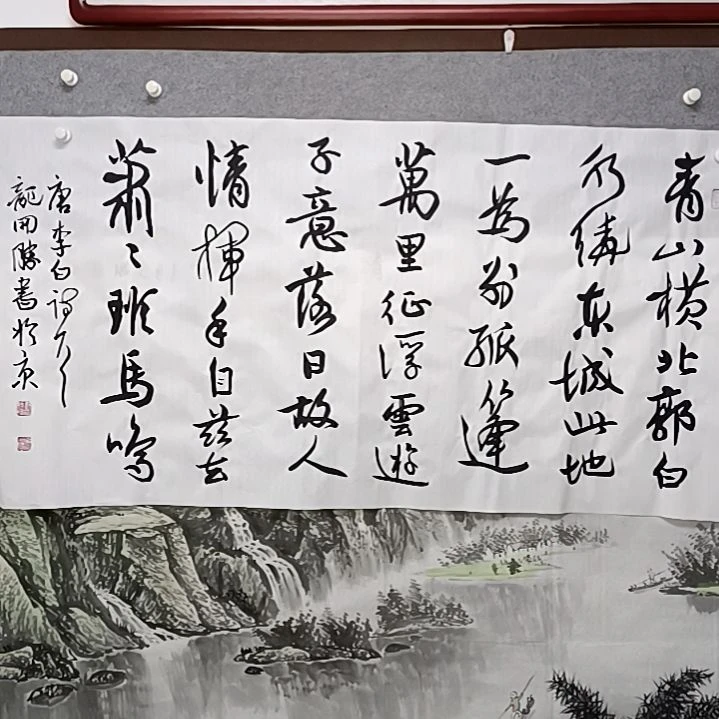 青山横北郭白
水繞东城此地
一為别孤篷
萬里征浮雲遊
子意落日故人
情揮手自茲去
蕭〻班馬鳴
唐李白詩
龍開勝書於京